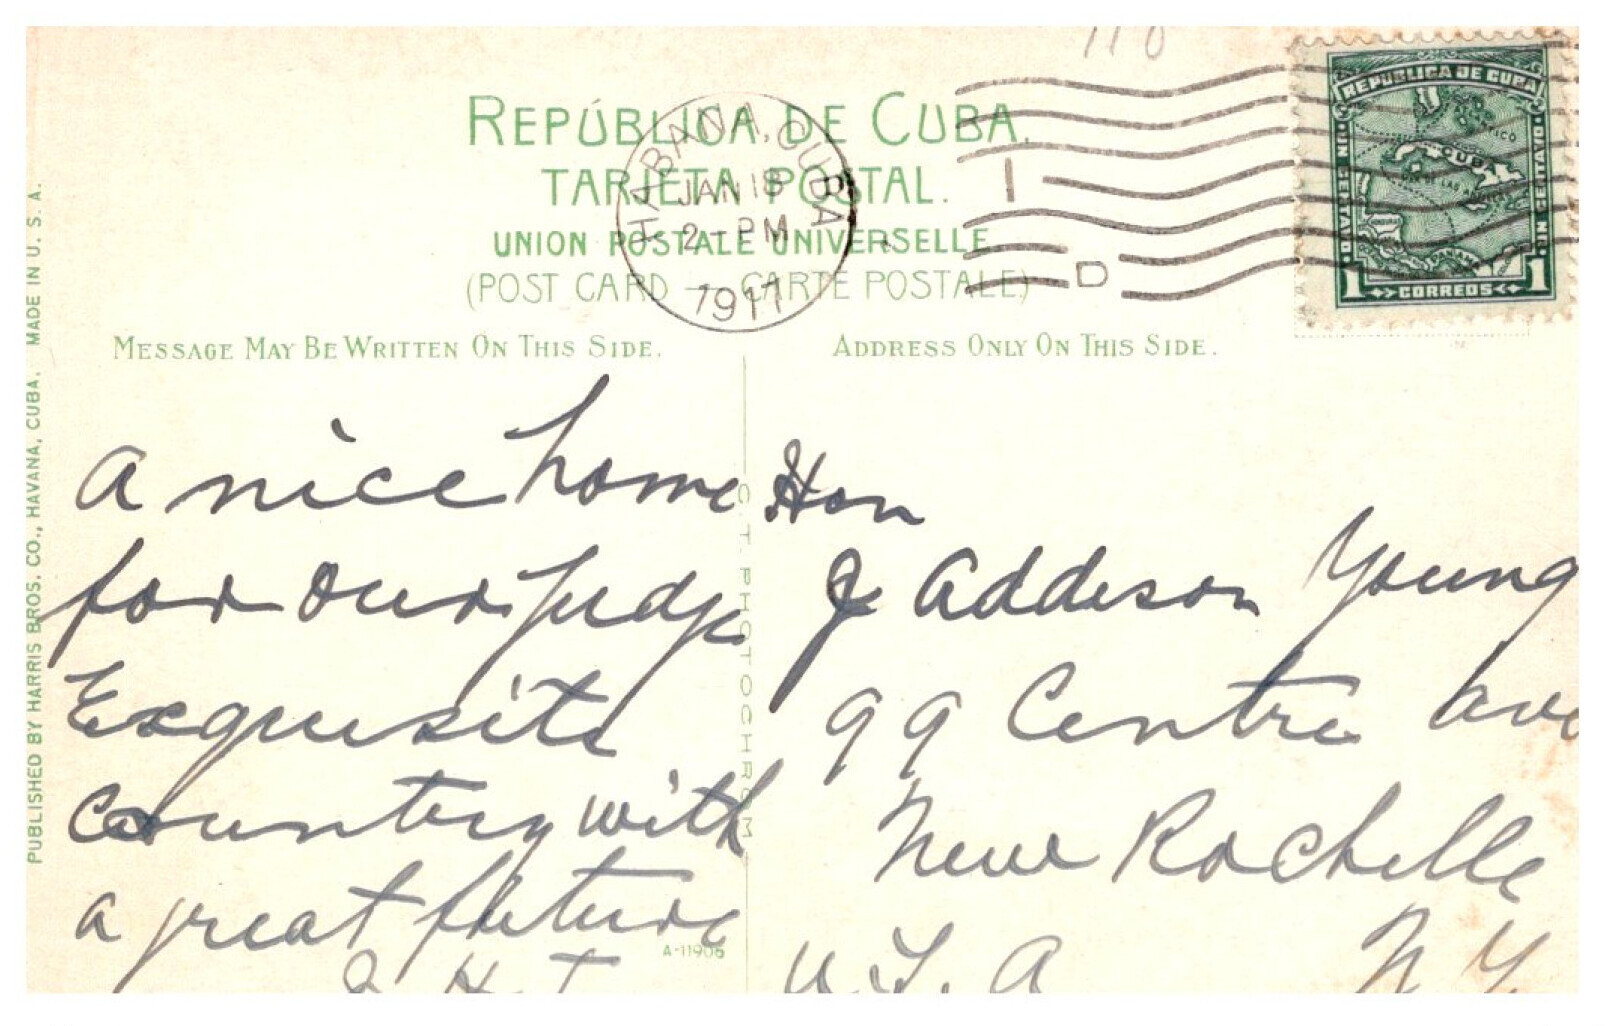 110
REPÚBLICA DE CUBA.
TARJETA POSTAL.
UNION POSTALE UNIVERSELLE.
(POST CARD — CARTE POSTALE)
HABANA, CUBA
JAN 18
2 - PM
1911
HABA
I
D
REPUBLICA DE CUBA
CUBA
1 CORREOS 1
MESSAGE MAY BE WRITTEN ON THIS SIDE.
ADDRESS ONLY ON THIS SIDE.
PUBLISHED BY HARRIS BROS. CO., HAVANA, CUBA. MADE IN U. S. A.
C. T. PHOTOCHROM
A nice home
for our Judge
Exquisite
Country with
a great future
J H T
A-11906
Hon
J Addison Young
99 Centre Ave
New Rochelle
U.S.A N Y